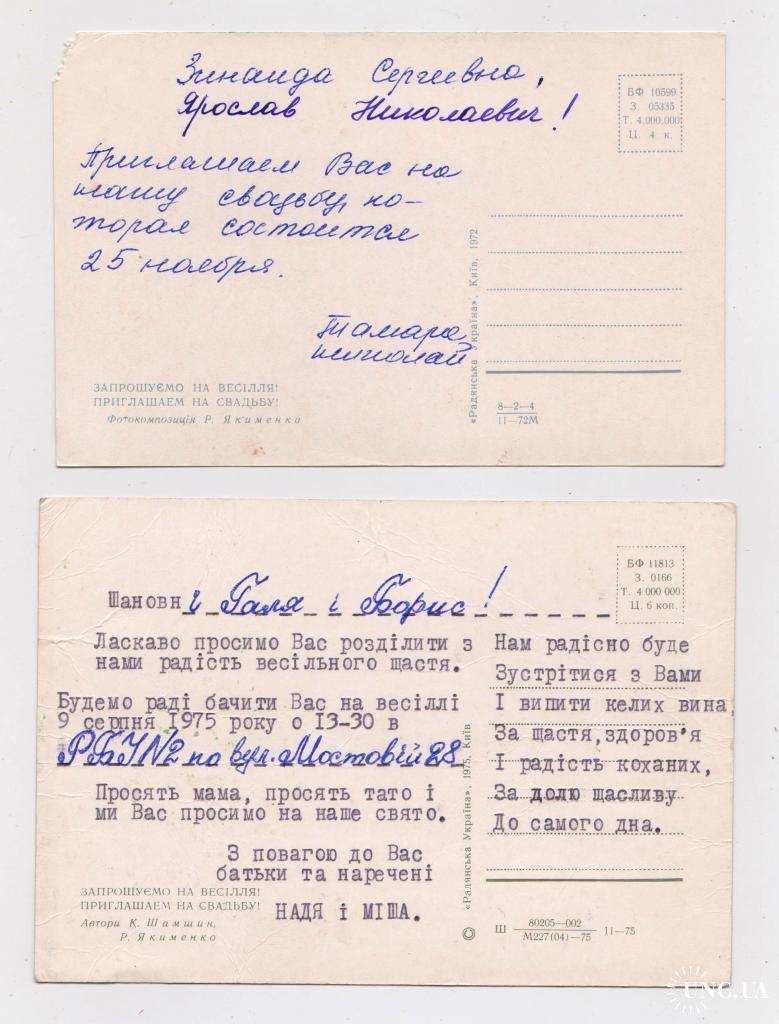 Зинаида Сергеевна,
Ярослав Николаевич!
Приглашаем Вас на
нашу свадьбу, ко-
торая состоится
25 ноября.
Тамара,
николай
БФ 10599
З. 05335
Т. 4.000.000
Ц. 4 к.
«Радянська Україна», Київ, 1972
ЗАПРОШУЄМО НА ВЕСІЛЛЯ!
ПРИГЛАШАЕМ НА СВАДЬБУ!
Фотокомпозиція Р. Якименка
8—2—4
11—72М
БФ 11813
З. 0166
Т. 4 000 000
Ц. 6 коп.
Шановні Галя і Борис!
Ласкаво просимо Вас розділити з
нами радість весільного щастя.
Будемо раді бачити Вас на весіллі
9 серпня 1975 року о 13-30 в
РБУ№2 по вул. Мостовій 28
Просять мама, просять тато і
ми Вас просимо на наше свято.
З повагою до Вас
батьки та наречені
НАДЯ і МІША.
Нам радісно буде
Зустрітися з Вами
І випити келих вина,
За щастя,здоров'я
І радість коханих,
За долю щасливу
До самого дна.
«Радянська Україна», 1975, Київ
ЗАПРОШУЄМО НА ВЕСІЛЛЯ!
ПРИГЛАШАЕМ НА СВАДЬБУ!
Автори К. Шамшин,
Р. Якименко
© Ш 80205—002 11—75
М227(04)—75
UNC.UA